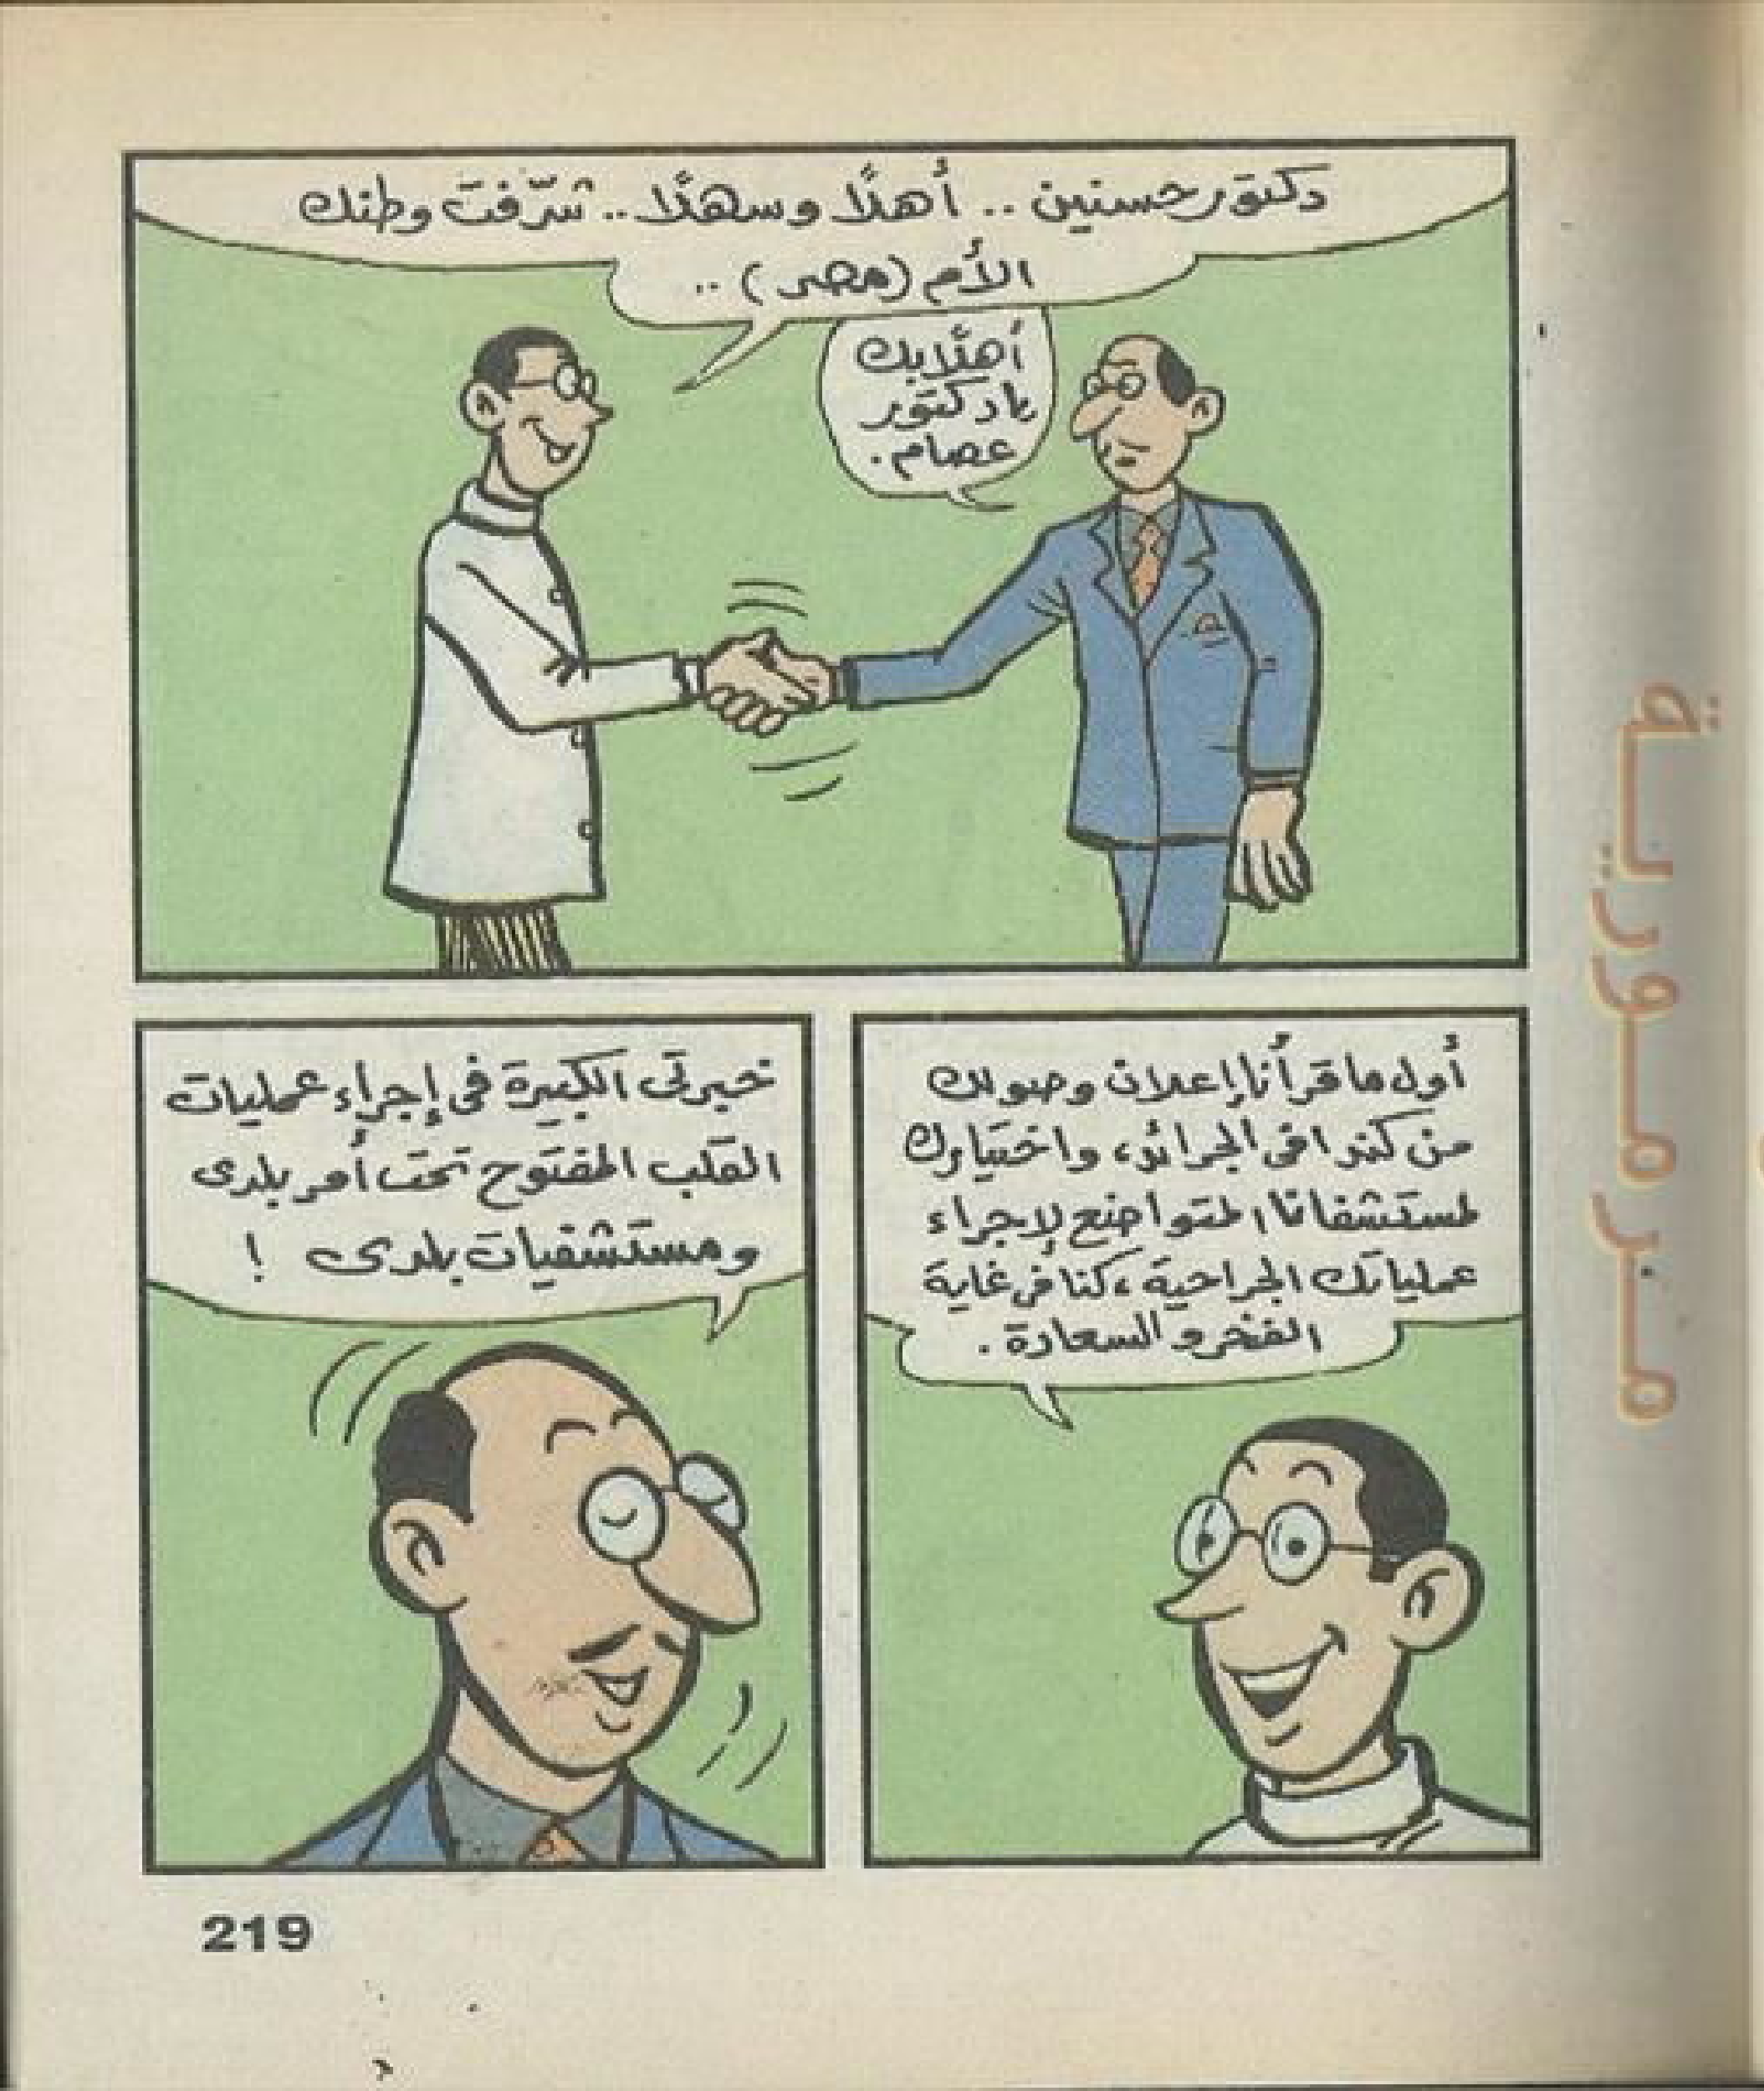 دكتور حسنين .. أهلًا وسهلًا .. شرّفت وطنك
الأم (مصر) ..
أهلًا بك
يا دكتور
عصام .
أول ما قرأنا إعلان وصولك
من كندا فى الجرائد، واختيارك
لمستشفانا المتواضع لإجراء
عملياتك الجراحية، كنا فى غاية
الفخر والسعادة .
خبرتى الكبيرة فى إجراء عمليات
القلب المفتوح تحت أمر بلدى
ومستشفيات بلدى !
219